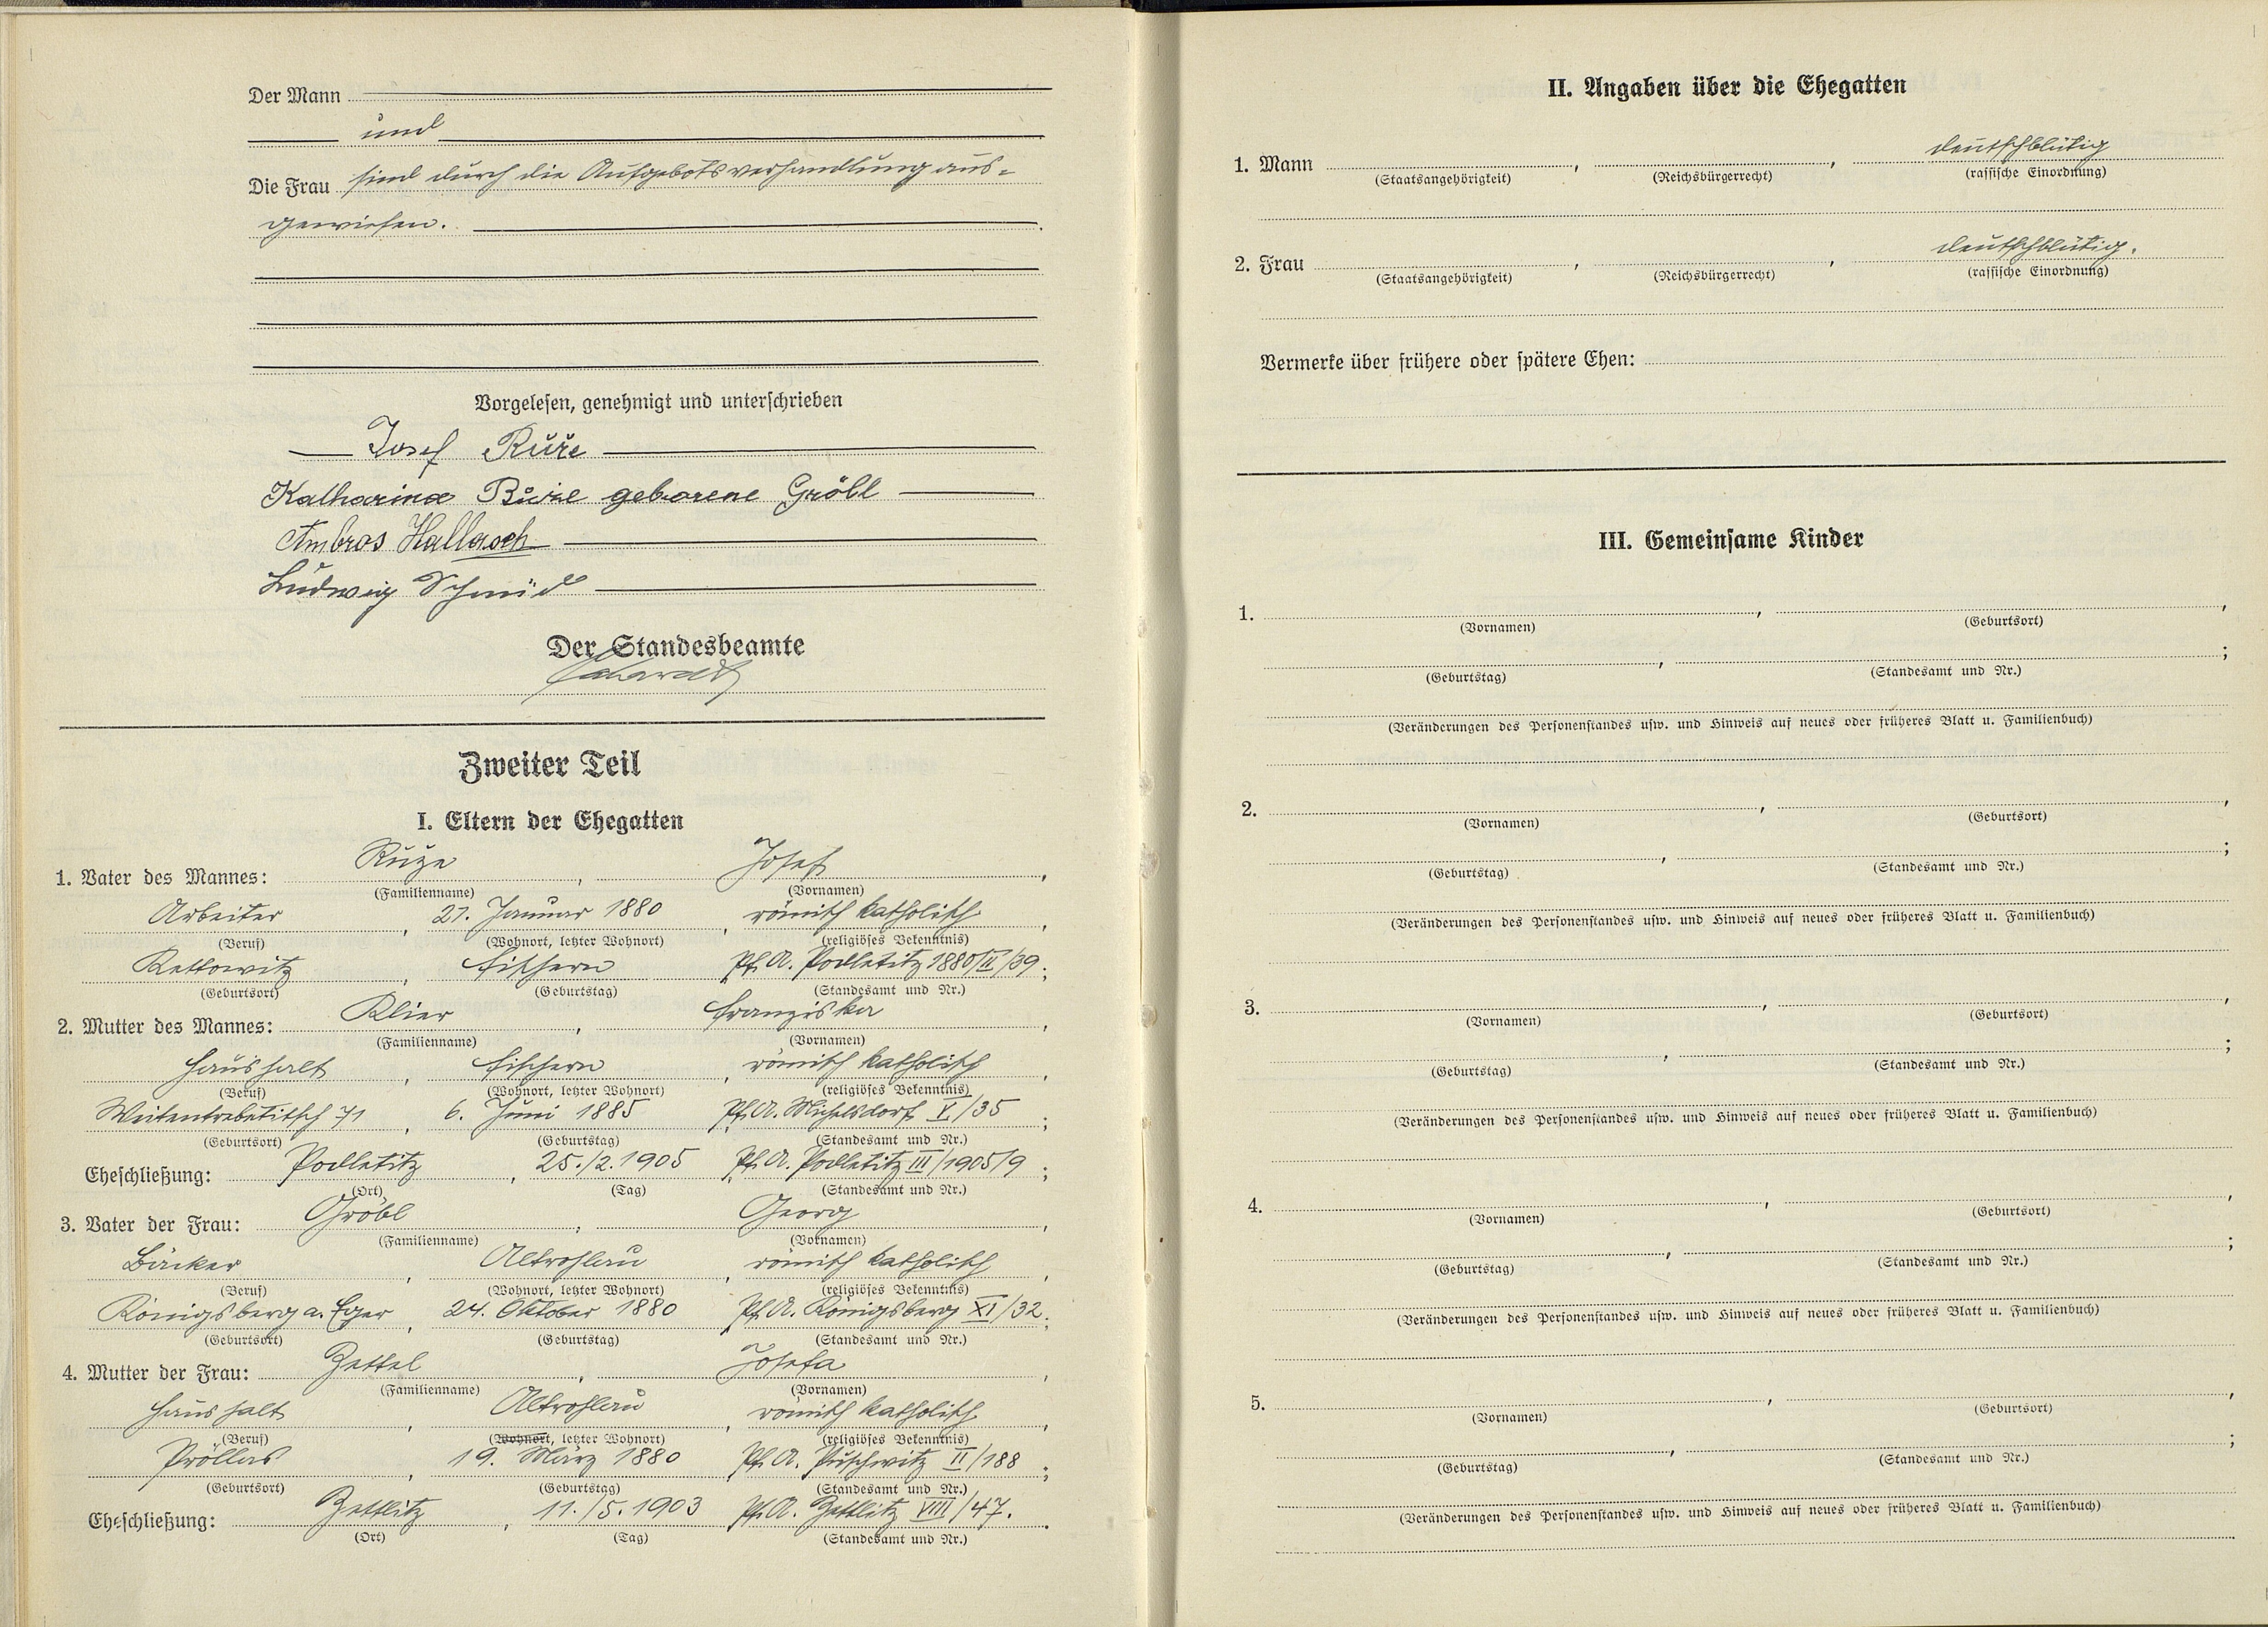 Der Mann
und
Die Frau sind durch die Aufgebotsverhandlung aus-
gewiesen.
Vorgelesen, genehmigt und unterschrieben
Josef Ruže
Katharina Ruže geborene Gröbl
Ambros Hallasch
Ludwig Schmid
Der Standesbeamte
Zweiter Teil
I. Eltern der Ehegatten
1. Vater des Mannes: Ruže, Josef,
(Familienname) (Vornamen)
Arbeiter, 21. Januar 1880, römisch katholisch,
(Beruf) (Wohnort, letzter Wohnort) (religiöses Bekenntnis)
Rettowitz, Fischern Pf. A. Podletitz 1880/II/39;
(Geburtsort) (Geburtstag) (Standesamt und Nr.)
2. Mutter des Mannes: Klier, Franziska,
(Familienname) (Vornamen)
Haushalt, Fischern, römisch katholisch,
(Beruf) (Wohnort, letzter Wohnort) (religiöses Bekenntnis)
Weitentrebetitsch 71, 6. Juni 1885, Pf. A. Michelsdorf V/35;
(Geburtsort) (Geburtstag) (Standesamt und Nr.)
Eheschließung: Podletitz, 25./2.1905, Pf. A. Podletitz III/1905/9;
(Ort) (Tag) (Standesamt und Nr.)
3. Vater der Frau: Gröbl, Georg,
(Familienname) (Vornamen)
Bäcker, Altrohlau, römisch katholisch,
(Beruf) (Wohnort, letzter Wohnort) (religiöses Bekenntnis)
Königsberg a. Eger, 24. Oktober 1880 Pf. A. Königsberg XI/32;
(Geburtsort) (Geburtstag) (Standesamt und Nr.)
4. Mutter der Frau: Zettel, Josefa,
(Familienname) (Vornamen)
Haushalt, Altrohlau, römisch katholisch,
(Beruf) (Wohnort, letzter Wohnort) (religiöses Bekenntnis)
Pröllas, 19. März 1880 Pf. A. Puschwitz II/188;
(Geburtsort) (Geburtstag) (Standesamt und Nr.)
Eheschließung: Zettlitz, 11./5.1903 Pf. A. Zettlitz VIII/47.
(Ort) (Tag) (Standesamt und Nr.)
II. Angaben über die Ehegatten
1. Mann , , deutschblütig
(Staatsangehörigkeit) (Reichsbürgerrecht) (rassische Einordnung)
2. Frau , , deutschblütig.
(Staatsangehörigkeit) (Reichsbürgerrecht) (rassische Einordnung)
Vermerke über frühere oder spätere Ehen:
III. Gemeinsame Kinder
1. , ,
(Vornamen) (Geburtsort)
, ;
(Geburtstag) (Standesamt und Nr.)
(Veränderungen des Personenstandes usw. und Hinweis auf neues oder früheres Blatt u. Familienbuch)
2. , ,
(Vornamen) (Geburtsort)
, ;
(Geburtstag) (Standesamt und Nr.)
(Veränderungen des Personenstandes usw. und Hinweis auf neues oder früheres Blatt u. Familienbuch)
3. , ,
(Vornamen) (Geburtsort)
, ;
(Geburtstag) (Standesamt und Nr.)
(Veränderungen des Personenstandes usw. und Hinweis auf neues oder früheres Blatt u. Familienbuch)
4. , ,
(Vornamen) (Geburtsort)
, ;
(Geburtstag) (Standesamt und Nr.)
(Veränderungen des Personenstandes usw. und Hinweis auf neues oder früheres Blatt u. Familienbuch)
5. , ,
(Vornamen) (Geburtsort)
, ;
(Geburtstag) (Standesamt und Nr.)
(Veränderungen des Personenstandes usw. und Hinweis auf neues oder früheres Blatt u. Familienbuch)